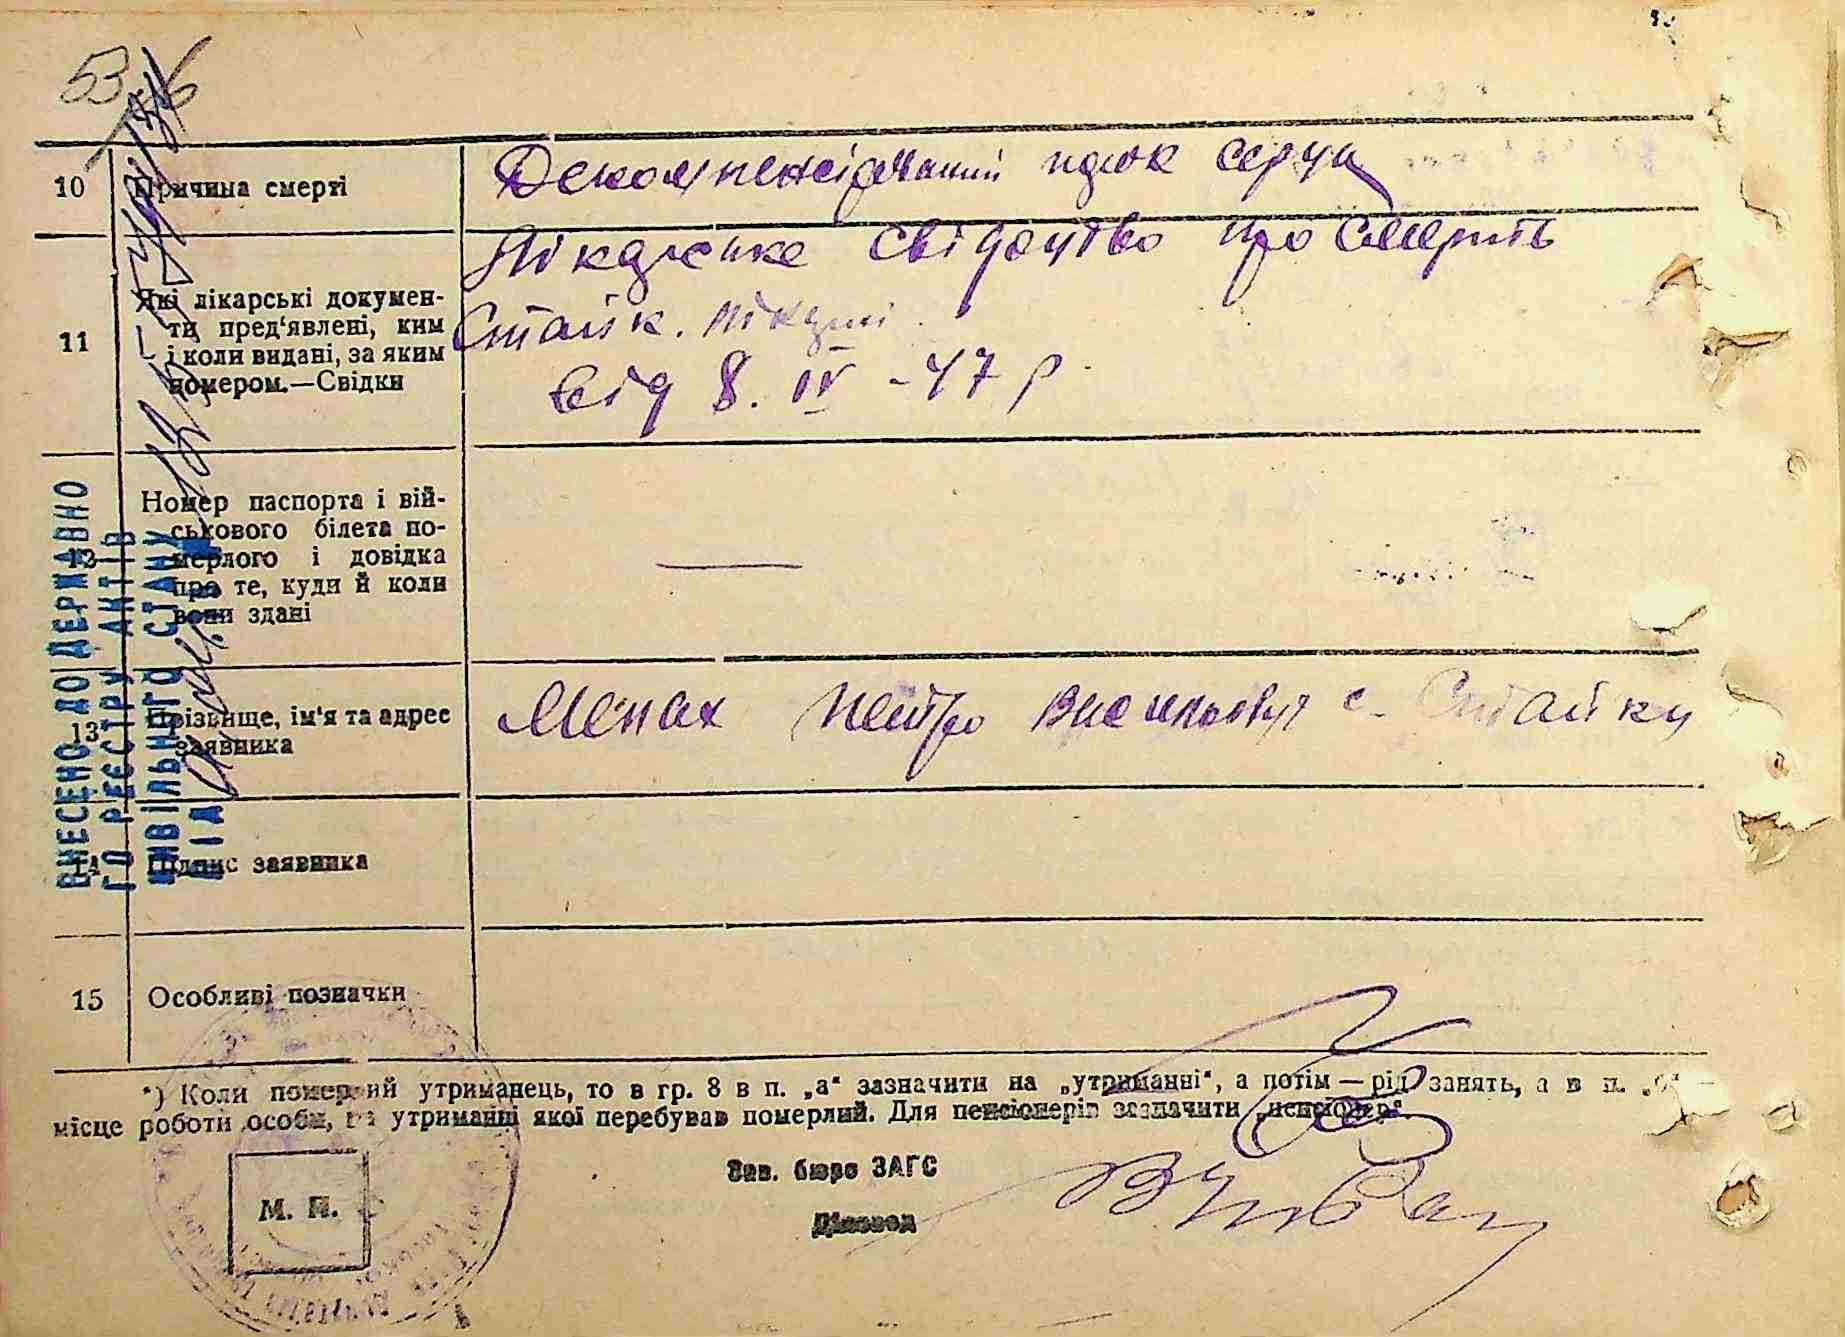 10 Причина смерті
Декомпенсірований порок серця
11 Які лікарські докумен-
ти пред'явлені, ким
і коли видані, за яким
номером.—Свідки
Лікарське свідоцтво про смерть
Стайк. лікарні
від 8. IV -47 р
12 Номер паспорта і вій-
ськового білета по-
мерлого і довідка
про те, куди й коли
вони здані
—
13 Прізвище, ім'я та адрес
заявника
Менах Петро Васильович с. Стайки
14 Підпис заявника
15 Особливі позначки
*) Коли померлий утриманець, то в гр. 8 в п. „а“ зазначити на „утриманні“, а потім — рід занять, а в п. „б“ —
місце роботи особи, на утриманні якої перебував померлий. Для пенсіонерів зазначити „пенсіонер“.
Зав. бюро ЗАГС
М. П.
Діловод
ВНЕСЕНО ДО ДЕРЖАВНО
ГО РЕЄСТРУ АКТІВ
ЦИВІЛЬНОГО СТАНУ